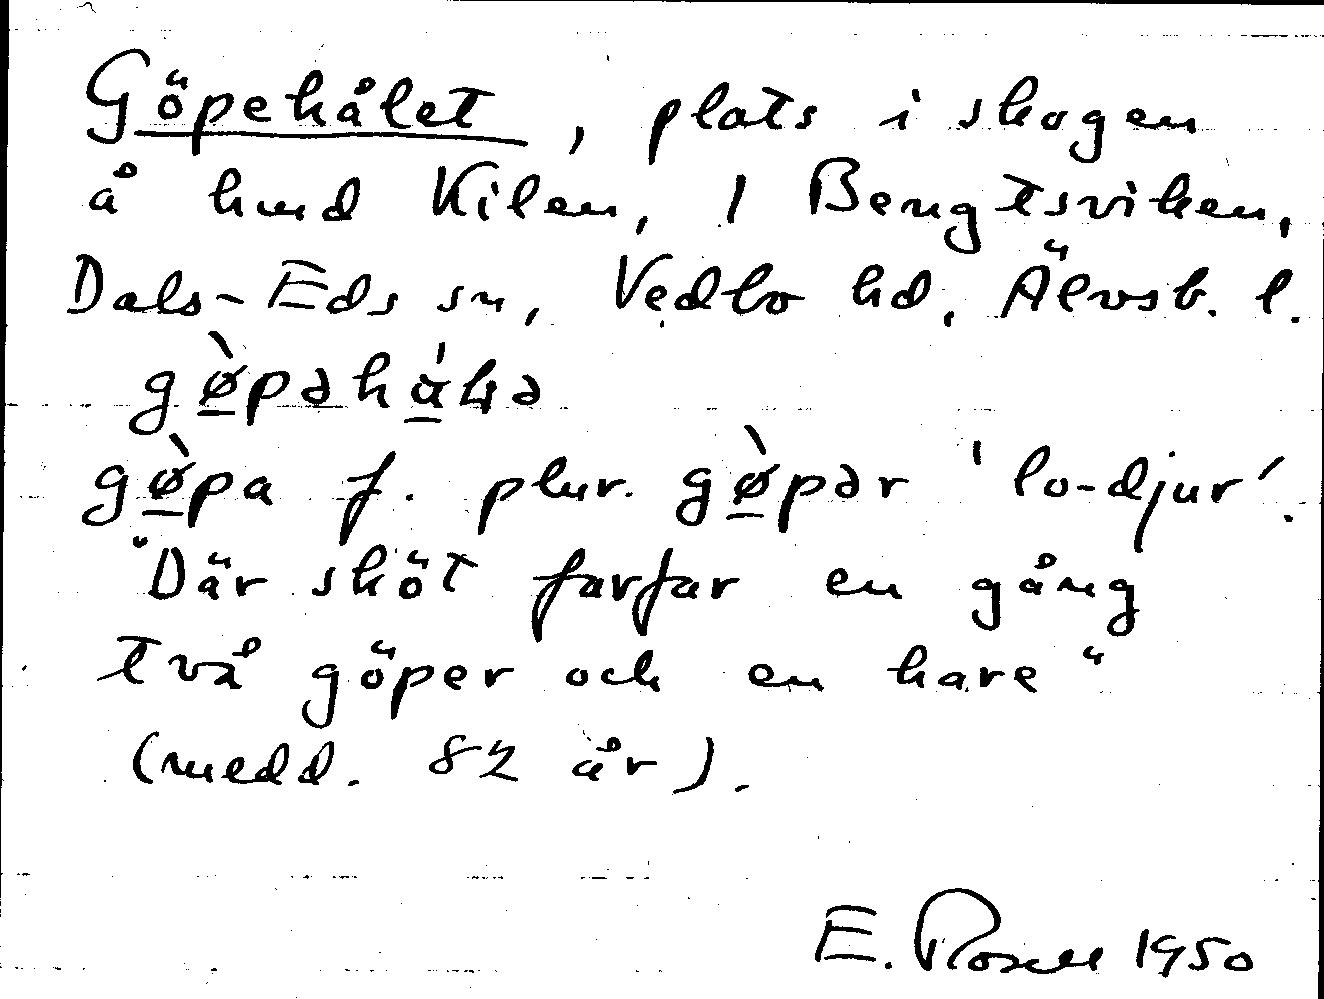 Göpehålet, plats i skogen
å hmd Kilen, 1 Bengtsviken,
Dals-Eds sn, Vedbo hd, Älvsb. l.
gø̀pəhɑ́ɫə
gø̀pa f. plur. gø̀pər 'lo-djur'.
"Där sköt farfar en gång
två göper och en hare"
(medd. 82 år).
E. Rosell 1950